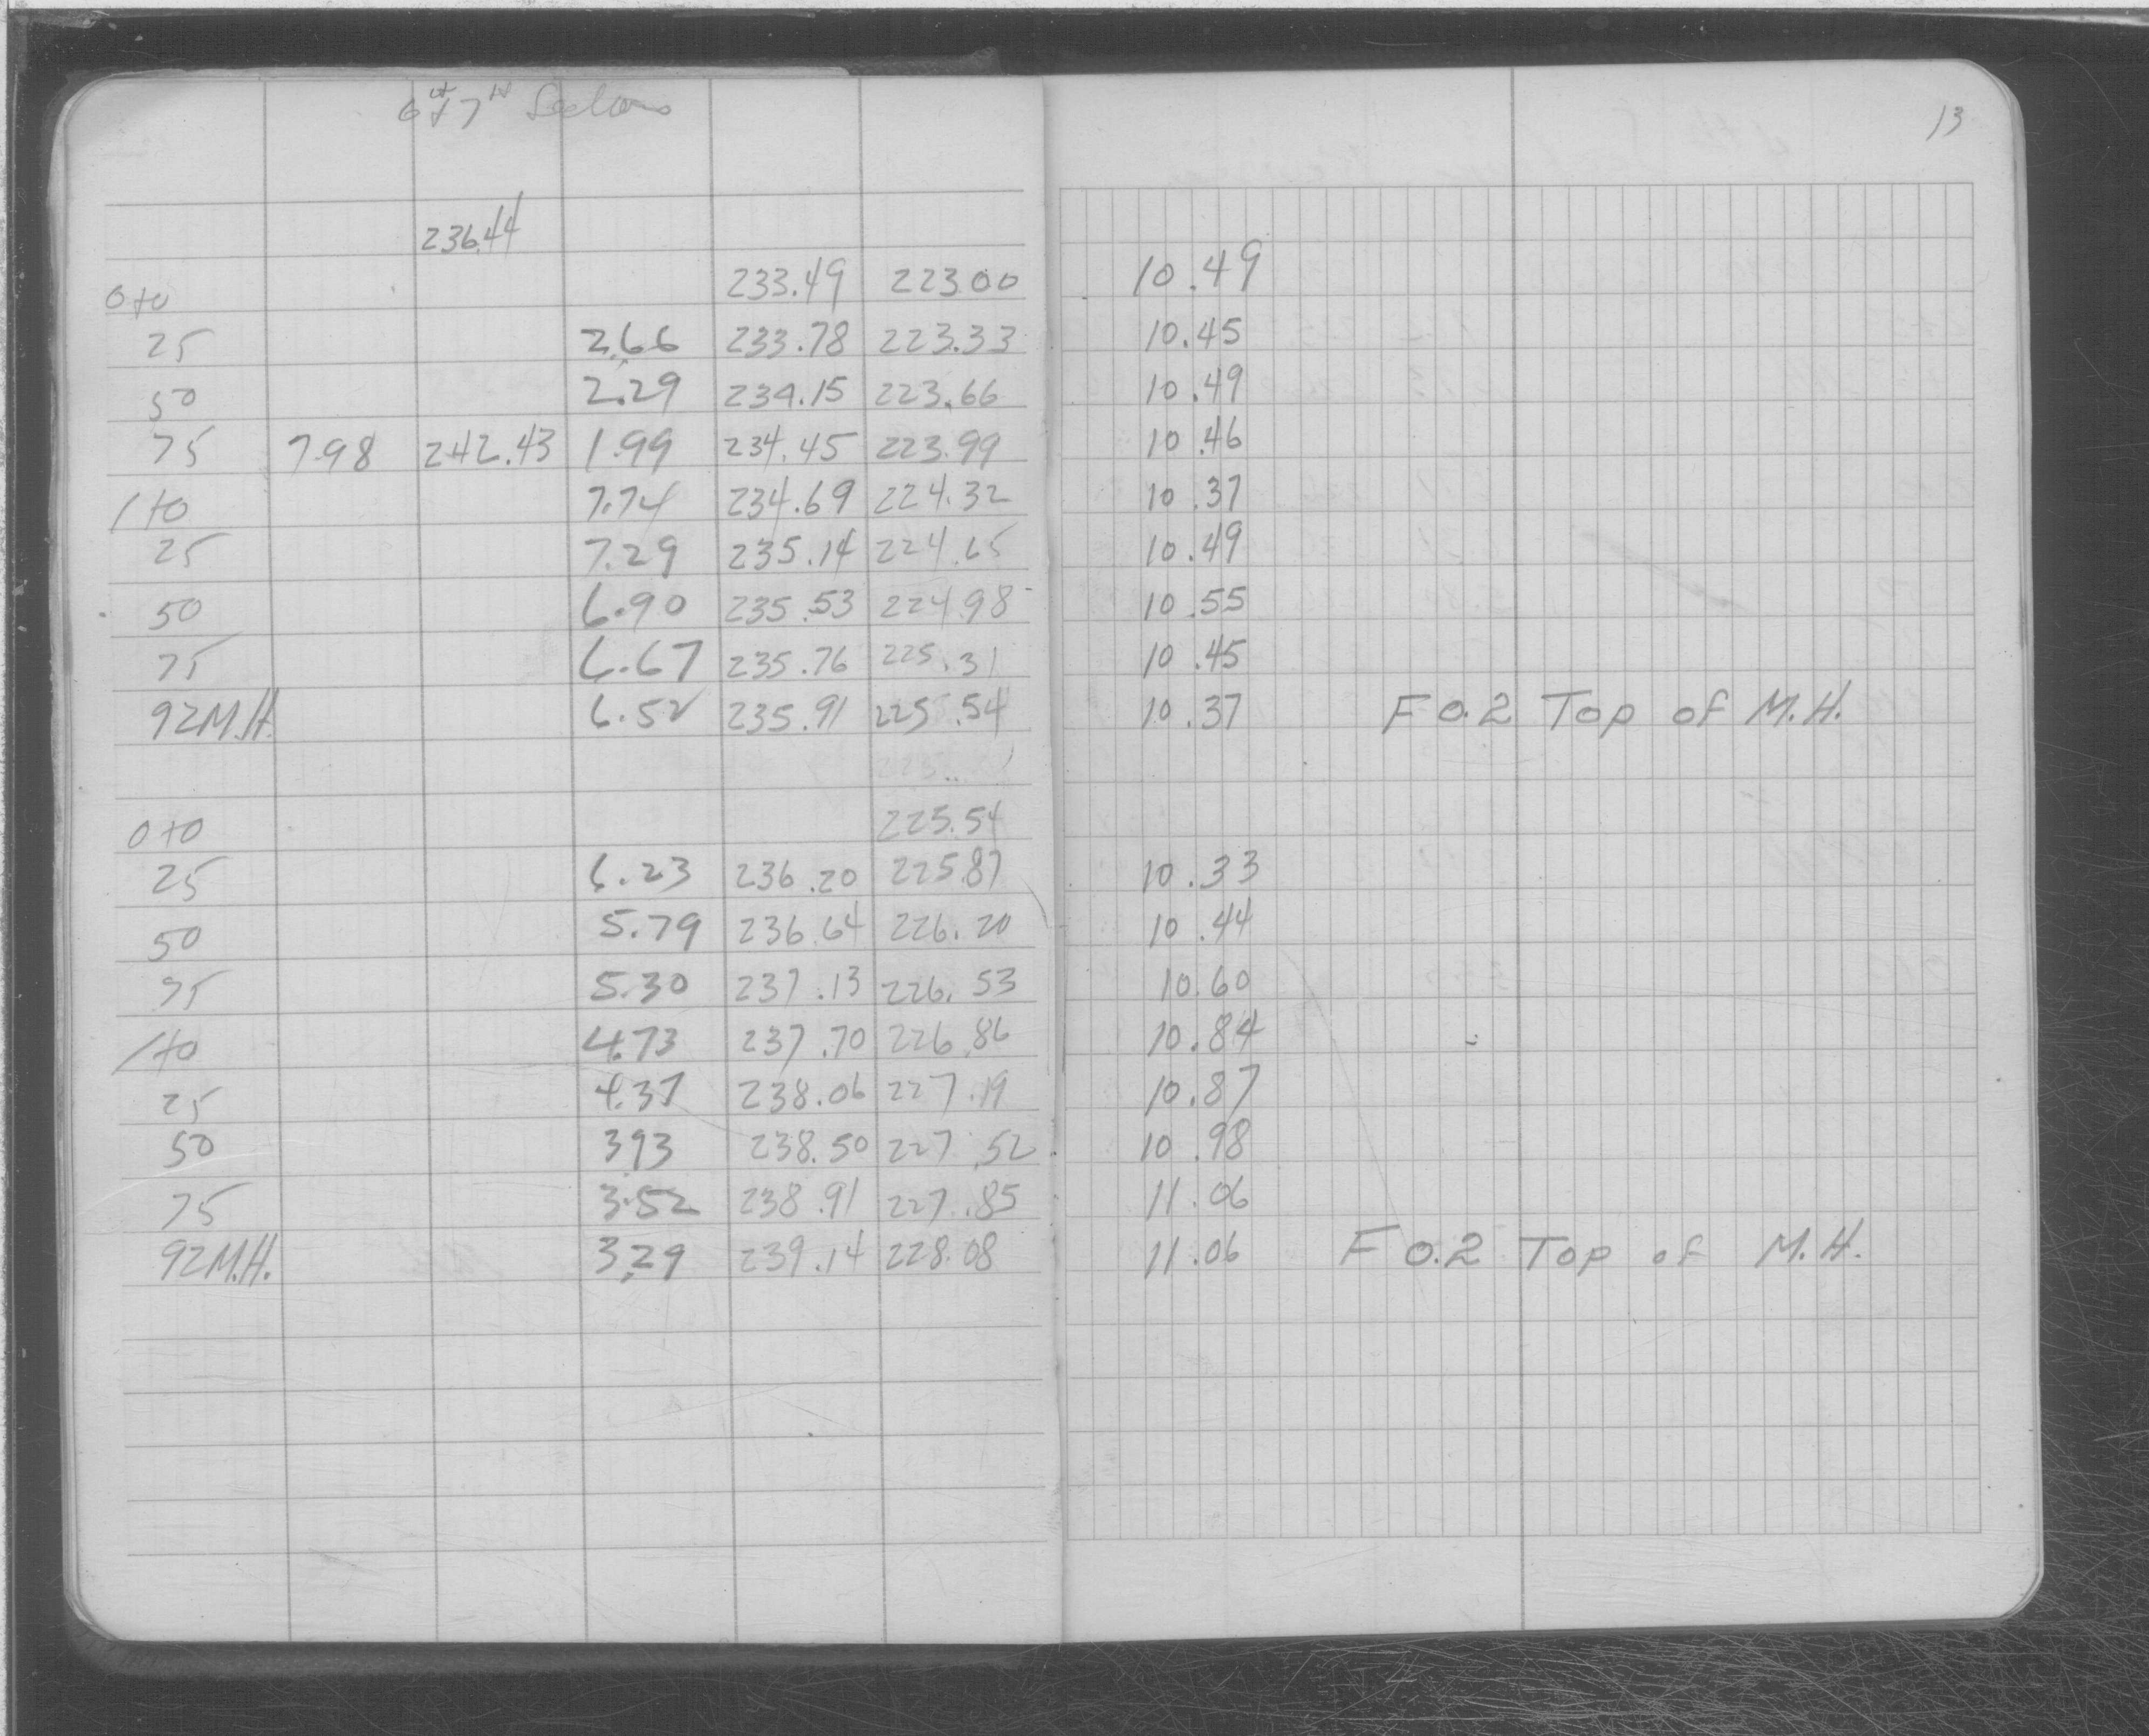 6th & 7th Sections
13
236.44
0+0 233.49 223.00 10.49
25 2.66 233.78 223.33 10.45
50 2.29 234.15 223.66 10.49
75 7.98 242.43 1.99 234.45 223.99 10.46
1+0 7.74 234.69 224.32 10.37
25 7.29 235.14 224.65 10.49
50 6.90 235.53 224.98 10.55
75 6.67 235.76 225.31 10.45
92 M.H. 6.52 235.91 225.54 10.37 F 0.2 Top of M.H.
0+0 225.54
25 6.23 236.20 225.87 10.33
50 5.79 236.64 226.20 10.44
75 5.30 237.13 226.53 10.60
1+0 4.73 237.70 226.86 10.84
25 4.37 238.06 227.19 10.87
50 3.93 238.50 227.52 10.98
75 3.52 238.91 227.85 11.06
92 M.H. 3.29 239.14 228.08 11.06 F 0.2 Top of M.H.